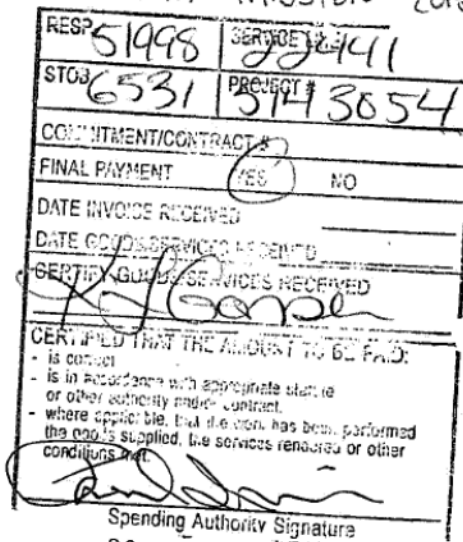 RESP 51998 SERVICE 22441
STOB 6531 PROJECT # 3143054
COMMITMENT/CONTRACT #
FINAL PAYMENT YES NO
DATE INVOICE RECEIVED
DATE GOODS/SERVICES RECEIVED
CERTIFY GOODS/SERVICES RECEIVED
CERTIFIED THAT THE AMOUNT TO BE PAID:
- is correct
- is in accordance with appropriate statute
or other authority and/or contract.
- where applicable, that the work has been performed
the goods supplied, the services rendered or other
conditions met.
Spending Authority Signature